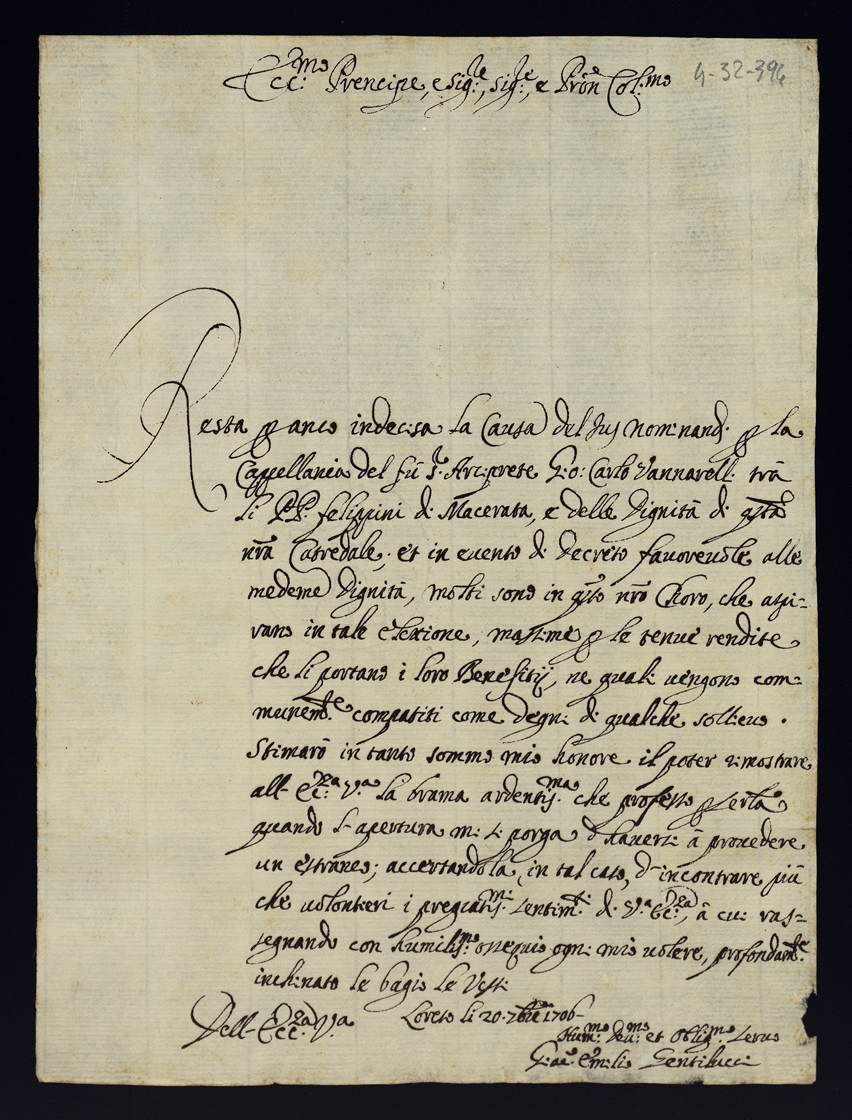 Ecc:mo Prencipe, e Sig:re, Sig:re, e Pron Col:mo
4-32-394
Resta p anco indecisa la Causa del Jus nominandi p la
Cappellania del fù Sr. Arciprete Gio: Carlo Vannarelli trà
li PP. Felippini di Macerata, e delle Dignità di qsta
nra Catredale; et in evento di decreto favorevole alle
medeme Dignità, molti sono in qsto nro Choro, che aspi=
rano in tale elettione, massime p le tenui rendite
che li portano i loro Benefitij, ne quali vengono com=
munemte compatiti come degni di qualche sollievo.
Stimarò in tanto sommo mio honore il poter rimostrare
all' Ecc:za V:a la brama ardentis:ma che professo
quando l'apertura mi si porga d'haversi à provedere
un estraneo; accertandola, in tal caso, d'incontrare più
che volontieri i pregiatis:mi sentim:ti di V:a Ecc:za, à cui ras=
segnando con humilis:mo ossequio ogni mio volere, profondam:te
inchinato le bagio le Vesti
Dell' Ecc:za V:a Loreto li 20. 7bre 1706
Hum:mo Dev:mo et Oblig:mo Servo
Gentilucci